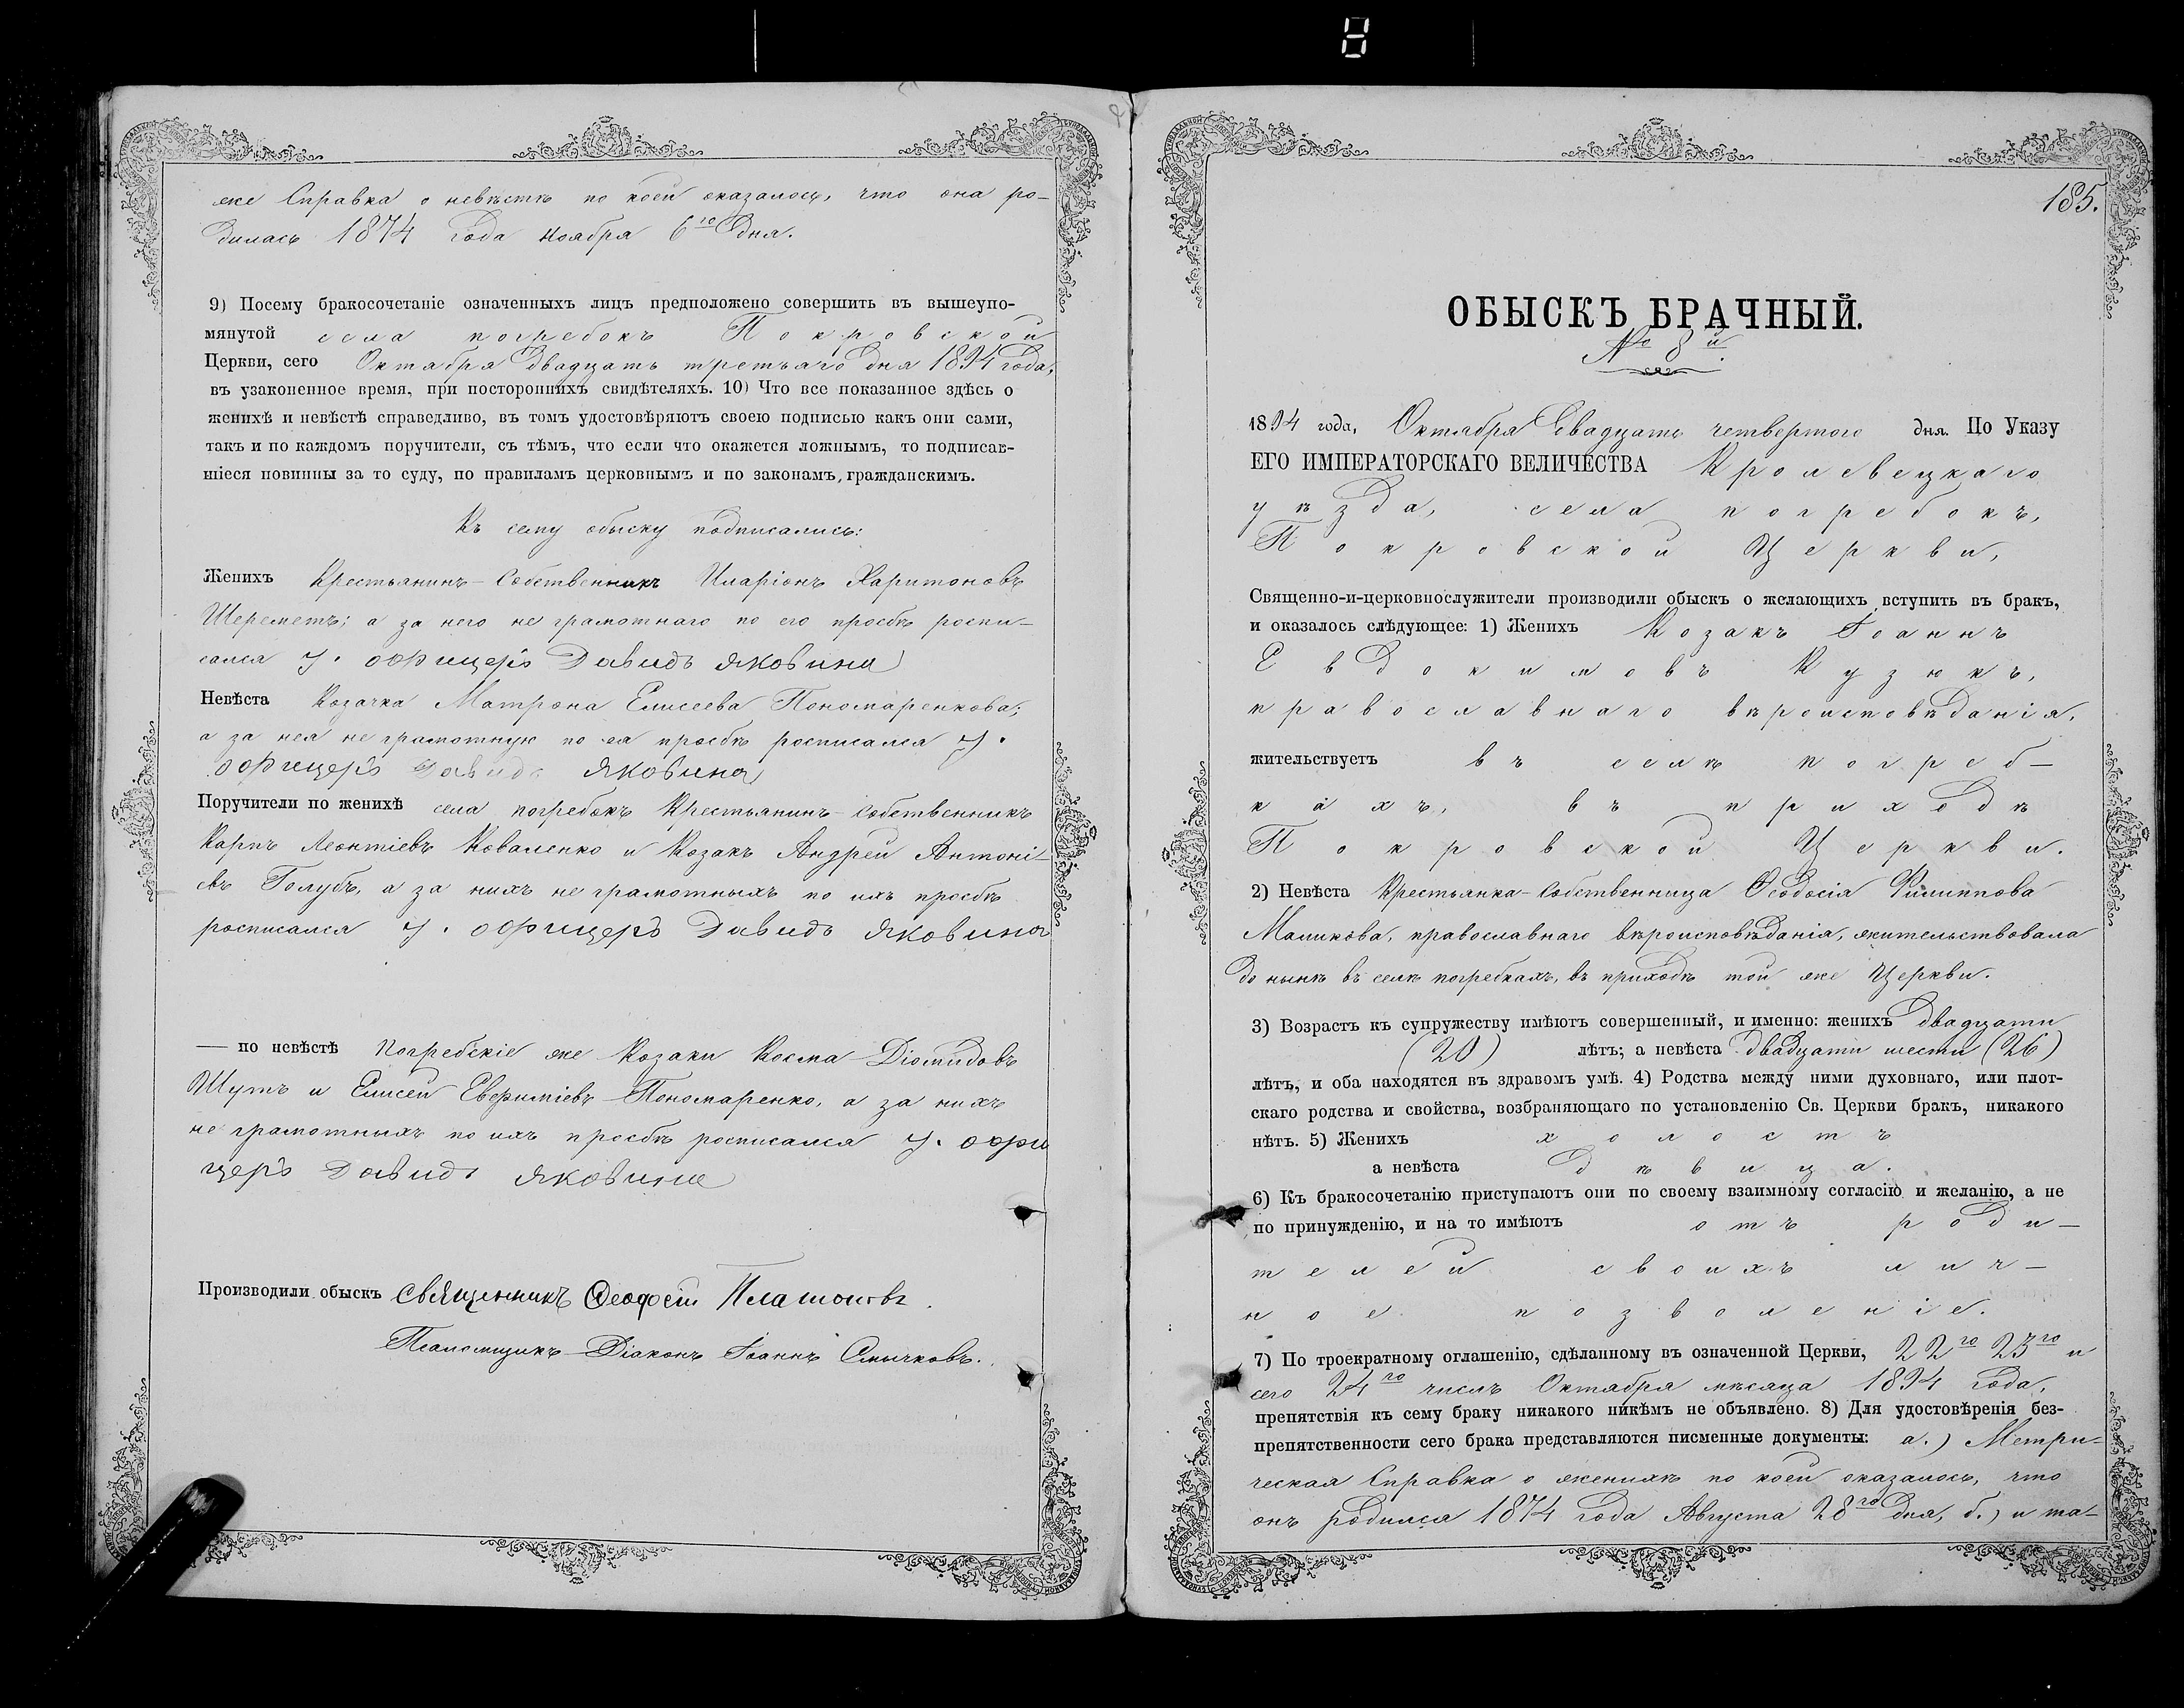 же Справка о невѣстѣ по коей оказалось, что она ро-
дилась 1874 года ноября 6го дня.
9) Посему бракосочетаніе означенныхъ лицъ предположено совершить въ вышеупо-
мянутой села погребокъ Покровской
Церкви, сего Октября двадцать третьяго дня 1894 года,
въ узаконенное время, при постороннихъ свидѣтеляхъ. 10) Что все показанное здѣсь о
женихѣ и невѣстѣ справедливо, въ томъ удостовѣряютъ своею подписью какъ они сами,
такъ и по каждомъ поручители, съ тѣмъ, что если что окажется ложнымъ, то подписав-
шіеся повинны за то суду, по правиламъ церковнымъ и по законамъ, гражданскимъ.
Къ сему обыску подписались:
Женихъ Крестьянинъ-Собственникъ Иларіонъ Харитоновъ
Шереметъ; а за него не грамотнаго по его просьбѣ роспи-
сался у. офицеръ Давидъ Яковина
Невѣста Козачка Матрона Елисеева Пономаренкова;
а за нея не грамотную по ея просьбѣ росписался у.
офицеръ Давидъ Яковина
Поручители по женихѣ села погребокъ Крестьянинъ-Собственникъ
Карпъ Леонтіевъ Коваленко и Козакъ Андрей Антоні-
евъ Голубъ, а за нихъ не грамотныхъ по ихъ просьбѣ
росписался у. офицеръ Давидъ Яковина
— по невѣстѣ Погребскіе же Козаки Косма Діомидовъ
Шутъ и Елисей Евфиміевъ Пономаренко, а за нихъ
не грамотныхъ по ихъ просьбѣ росписался у. офи
церъ Давидъ Яковина
Производили обыскъ Священникъ Феодосій Платоновъ.
Псаломщикъ-Діаконъ Іоаннъ Смычковъ.
185.
ОБЫСКЪ БРАЧНЫЙ.
№ 8й.
1894 года, Октября двадцать четвертого дня. По Указу
ЕГО ИМПЕРАТОРСКАГО ВЕЛИЧЕСТВА Кролевецкаго
уѣзда, села погребокъ,
Покровской Церкви,
Священно-и-церковнослужители производили обыскъ о желающихъ вступить въ бракъ,
и оказалось слѣдующее: 1) Женихъ Козакъ Іоаннъ
Евдокимовъ Кузюкъ,
православнаго вѣроисповѣданія,
жительствуетъ въ селѣ погреб-
кахъ, въ приходѣ
Покровской Церкви.
2) Невѣста Крестьянка-Собственница Ѳеодосія Филиппова
Маликова, православнаго вѣроисповѣданія, жительствовала
до нынѣ въ селѣ погребкахъ, въ приходѣ той же Церкви.
3) Возрастъ къ супружеству имѣютъ совершенный, и именно: женихъ двадцати
(20) лѣтъ; а невѣста двадцати шести (26)
лѣтъ, и оба находятся въ здравомъ умѣ. 4) Родства между ними духовнаго, или плот-
скаго родства и свойства, возбраняющаго по установленію Св. Церкви бракъ, никакого
нѣтъ. 5) Женихъ холостъ
а невѣста дѣвица.
6) Къ бракосочетанію приступаютъ они по своему взаимному согласію и желанію, а не
по принужденію, и на то имѣютъ отъ роди-
телей своихъ лич-
ное позволеніе.
7) По троекратному оглашенію, сдѣланному въ означенной Церкви, 22го 23го и
сего 24го числъ Октября мѣсяца 1894 года,
препятствія къ сему браку никакого никѣмъ не объявлено. 8) Для удостовѣренія без-
препятственности сего брака представляются писменные документы: а.) Метри-
ческая Справка о женихѣ по коей оказалось, что
онъ родился 1874 года Августа 28го дня, б.) и та-